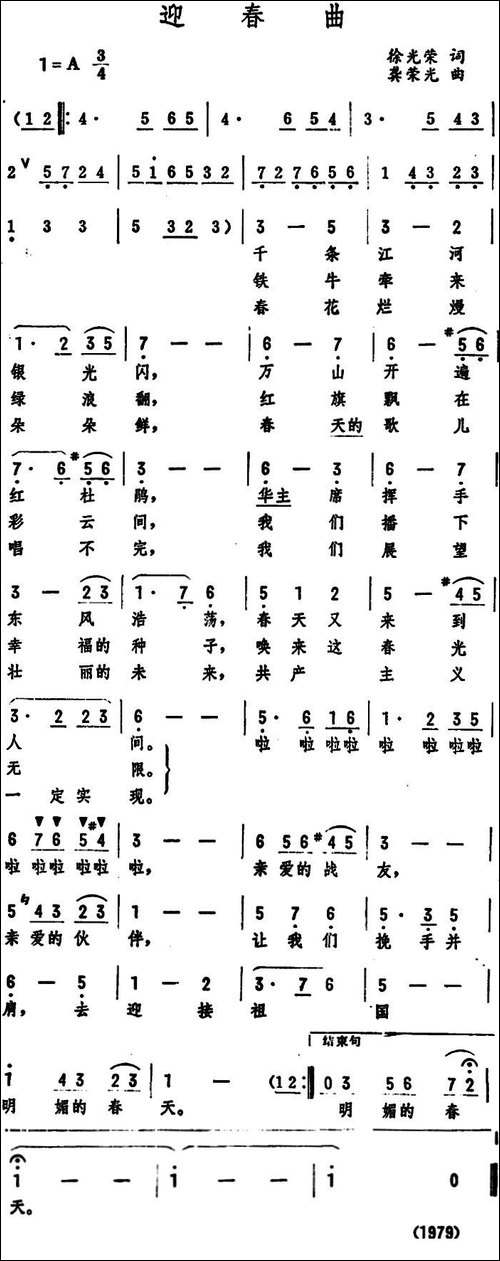 迎春曲
1=A 3/4
徐光荣 词
龚荣光 曲
(12 4· 5 65 4· 6 54 3· 5 43
2 57 24 51 65 32 72 76 56 1 43 23
1 3 3 5 32 3) 3 — 5 3 — 2
千条江河
铁牛牵来
春花烂熳
1· 2 35 7 — — 6 — 7 6 — #56
银光闪，万山开遍
绿浪翻，红旗飘在
朵朵鲜，春天的歌儿
7· 6 #56 3 — — 6 — 3 6 — 7
红杜鹃，华主席挥手
彩云间，我们播下
唱不完，我们展望
3 — 23 1· 7 6 5 1 2 5 — #45
东风浩荡，春天又来到
幸福的种子，唤来这春光
壮丽的未来，共产主义
3· 2 23 6 — — 5· 6 16 1· 2 35
人间。啦啦啦啦啦啦啦啦
无限。
一定实现。
6 76 5#4 3 — — 6 56 #45 3 — —
啦啦啦啦啦啦，亲爱的战友，
5 43 23 1 — — 5 7 6 5· 3 5
亲爱的伙伴，让我们挽手并
6 — 5 1 — 2 3· 7 6 5 — —
肩，去迎接祖国
结束句
1 43 23 1 — — (12 03 56 72
明媚的春天。明媚的春
1 — — 1 — — 1 0
天。
(1979)